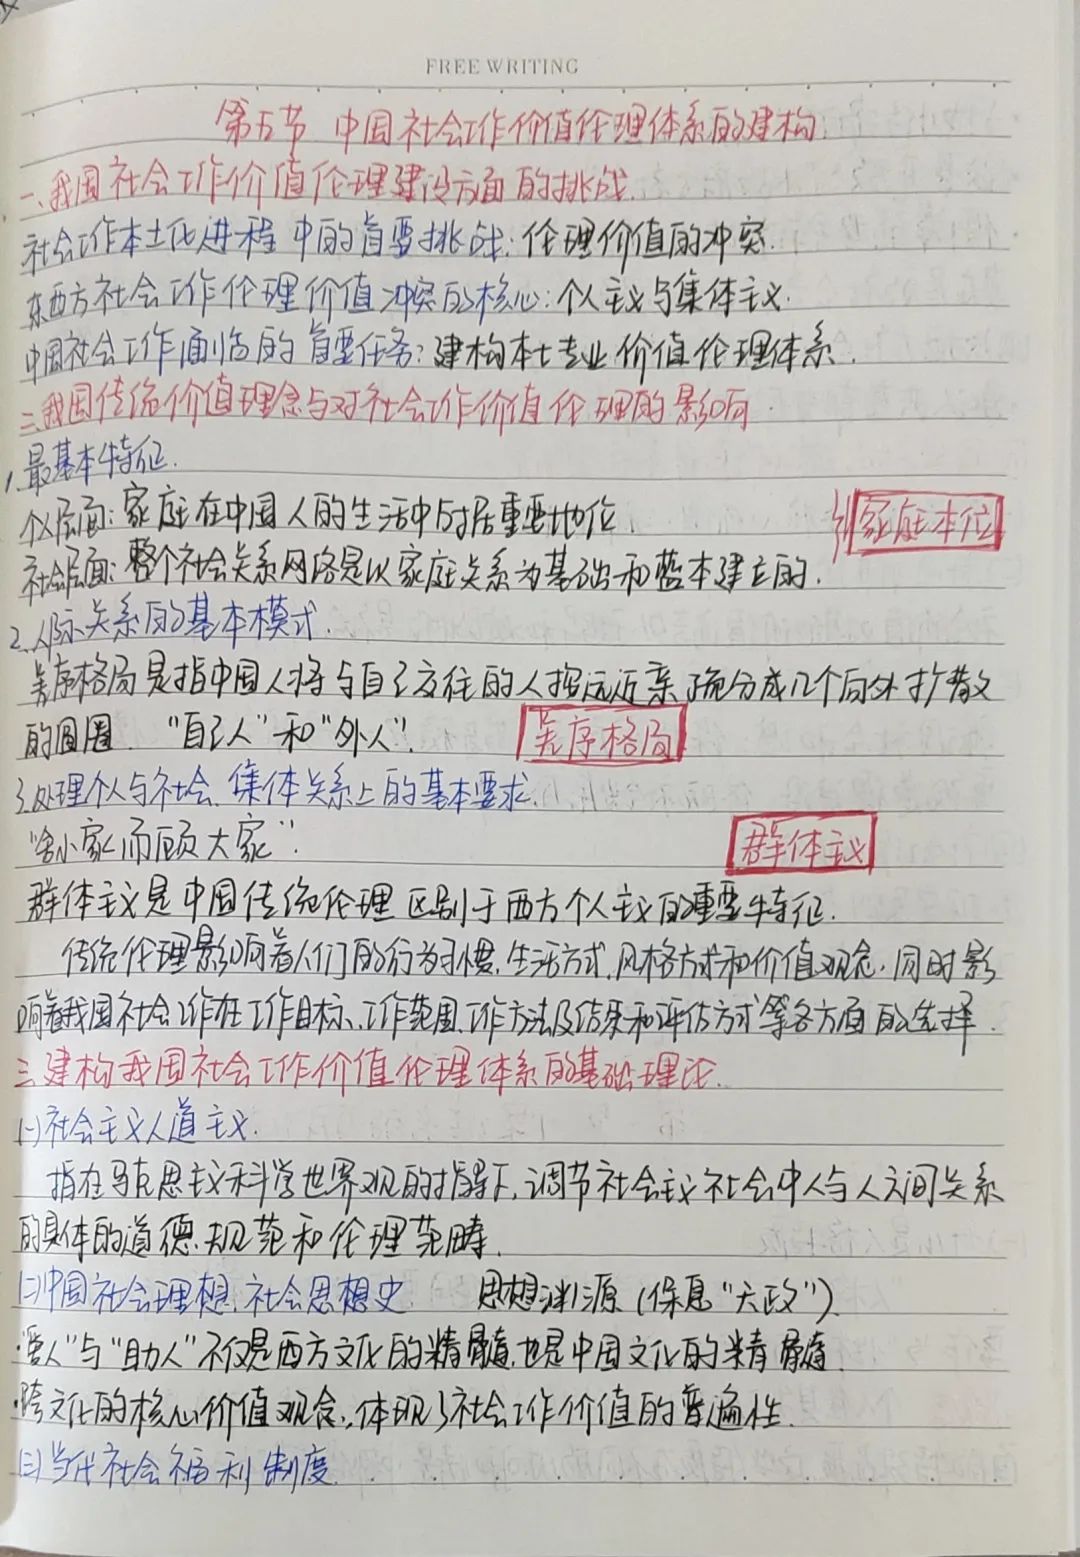 FREE WRITING
第五节 中国社会工作价值伦理体系的建构
一、我国社会工作价值伦理建设方面的挑战.
社会工作本土化进程中的首要挑战:伦理价值的冲突.
东西方社会工作伦理价值冲突的核心:个人主义与集体主义.
中国社会工作面临的首要任务:建构本土专业价值伦理体系.
二、我国传统价值理念与对社会工作价值伦理的影响.
1.最基本特征.
个人层面:家庭在中国人的生活中占据重要地位. 家庭本位
社会层面:整个社会关系网络是以家庭关系为基础和蓝本建立的.
2.人际关系的基本模式.
差序格局是指中国人将与自己交往的人按远近亲疏分成几个向外扩散
的圆圈. "自己人"和"外人". 差序格局
3.处理个人与社会、集体关系上的基本要求.
"舍小家而顾大家". 群体主义
群体主义是中国传统伦理区别于西方个人主义的重要特征.
传统伦理影响着人们的行为习惯、生活方式、风格方式和价值观念.同时影
响着我国社会工作在工作目标、工作范围、工作方法及结果和评估方式等各方面的选择.
三、建构我国社会工作价值伦理体系的基础理论.
(一)社会主义人道主义.
指在马克思主义科学世界观的指导下,调节社会主义社会中人与人之间关系
的具体的道德、规范和伦理范畴.
(二)中国社会理想、社会思想史 思想渊源(保息"六政")
·"爱人"与"助人"不仅是西方文化的精髓,也是中国文化的精髓.
·跨文化的核心价值观念,体现了社会工作价值的普遍性.
(三)当代社会福利制度.